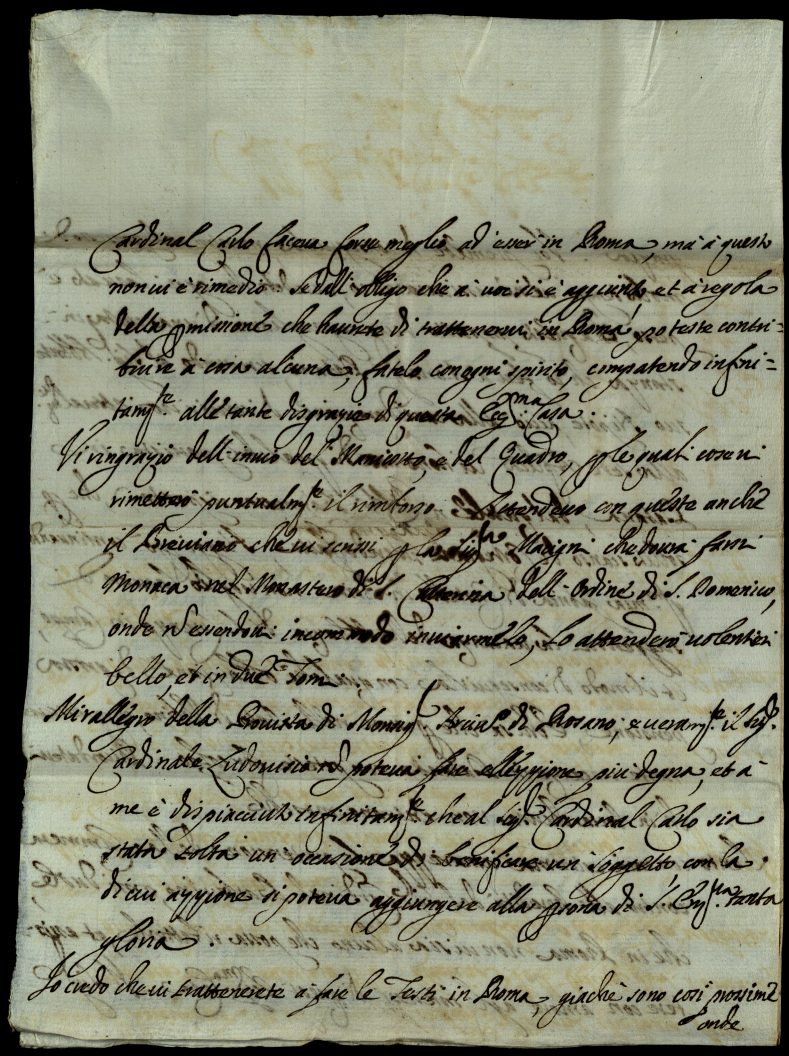 Cardinal Carlo faceua forse meglio ad esser in Roma, mà à questo
non ui è rimedio. Se dall'obligo che à uoi si è aggiunto, et à regola
della pmissione che hauete di trattenerui in Roma, poteste contri=
buire à cosa alcuna, fatelo con ogni spirito, compatendo infini=
tam.te alle tante disgrazie di questa Ecc.ma Casa.
Vi ringrazio dell'inuio del Manicotto, e del Quadro, p le quali cose ui
rimetterò puntualm.te il rimborso. Attendeuo con queste anche
il Breuiario che ui scrissi p la Sig.ra Macigni che dourà farsi
Monaca nel Monastero di S. Catterina dell'Ordine di S. Domenico,
onde nõ essendoui incommodo inuiarmelo, lo attenderò uolentieri
bello, et in due Tomi
Mi rallegro della Prouista di Monsig.r Arciu.o di Rosano, e ueram.te il Sig.r
Cardinale Ludouisio nõ poteua fare ellezzione più degna, et à
me è dispiaciuto infinitam.te che al Sig.r Cardinal Carlo sia
stata tolta un occasione di benificare un Soggetto, con la
di cui azzione si poteua aggiungere alla gloria di S. Em.za tanta
gloria
Io credo che ui tratterrete à fare le Feste in Roma, giache sono così prossime
onde